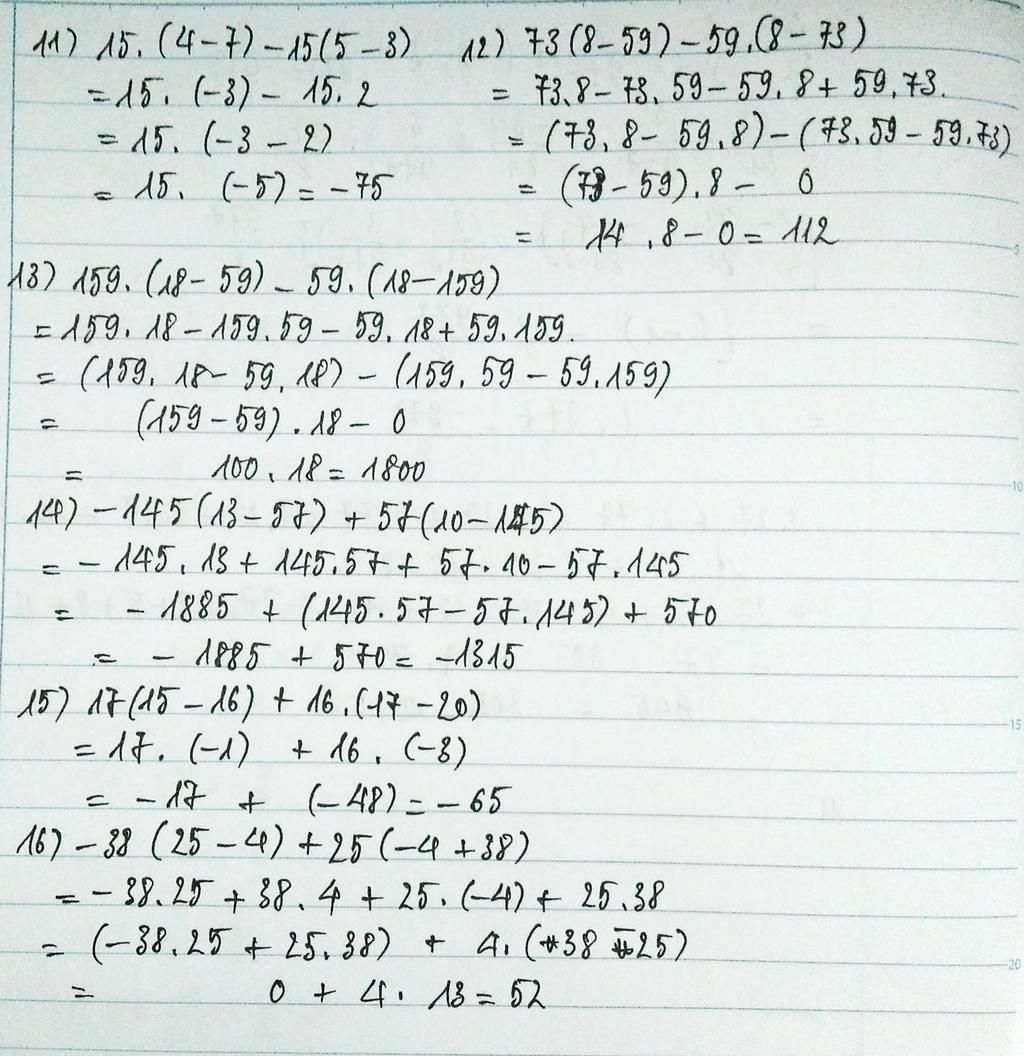 11) 15. (4-7) - 15(5-3)
= 15. (-3) - 15. 2
= 15. (-3 - 2)
= 15. (-5) = -75
12) 73(8-59) - 59.(8-73)
= 73.8 - 73. 59 - 59. 8 + 59.73.
= (73. 8 - 59.8) - (73.59 - 59.73)
= (73 - 59).8 - 0
= 14 .8 - 0 = 112
13) 159. (18-59) - 59. (18-159)
= 159. 18 - 159.59 - 59. 18 + 59.159.
= (159. 18 - 59. 18) - (159. 59 - 59.159)
= (159-59) . 18 - 0
= 100. 18 = 1800
14) - 145(13-57) + 57(10-145)
= - 145. 13 + 145.57 + 57. 10 - 57. 145
= - 1885 + (145. 57 - 57. 145) + 570
= - 1885 + 570 = -1315
15) 17(15-16) + 16.(17-20)
= 17. (-1) + 16. (-3)
= -17 + (-48) = -65
16) -38 (25-4) + 25(-4+38)
= -38.25 + 38. 4 + 25. (-4) + 25.38
= (-38.25 + 25.38) + 4. (38 - 25)
= 0 + 4. 13 = 52